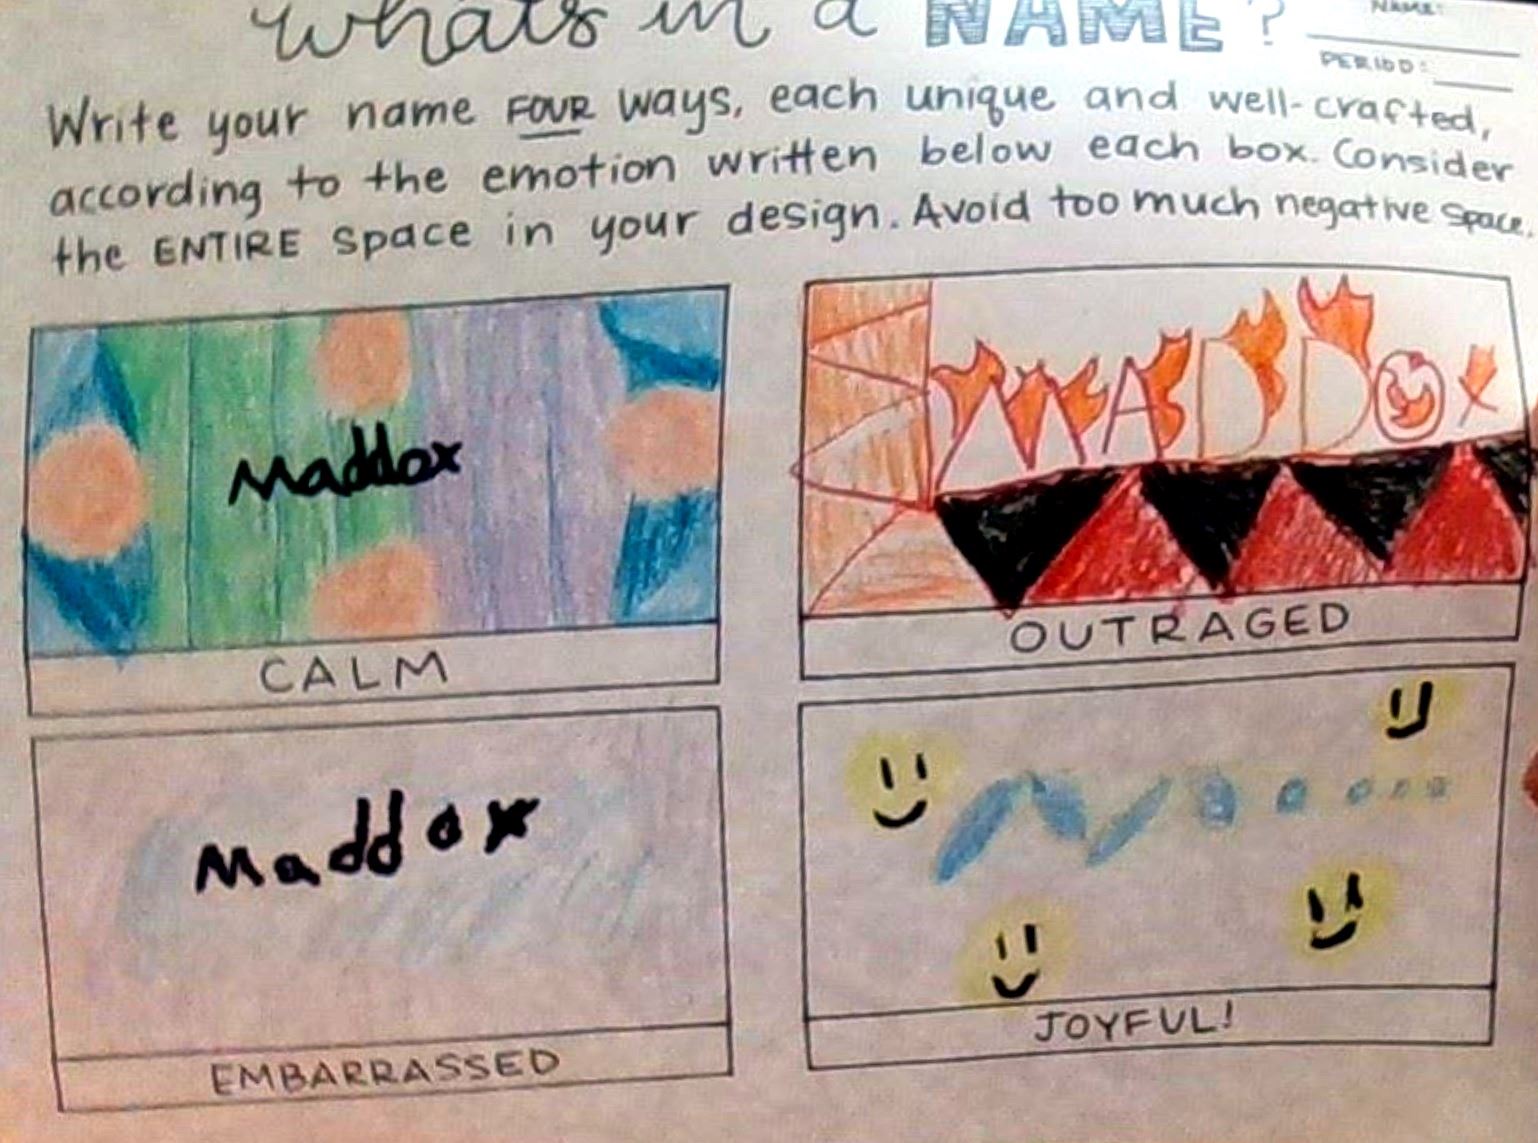 whats in a NAME?
NAME:
PERIOD:
Write your name FOUR ways, each unique and well-crafted,
according to the emotion written below each box. Consider
the ENTIRE space in your design. Avoid too much negative space.
Maddox
CALM
MADDOX
OUTRAGED
Maddox
EMBARRASSED
JOYFUL!